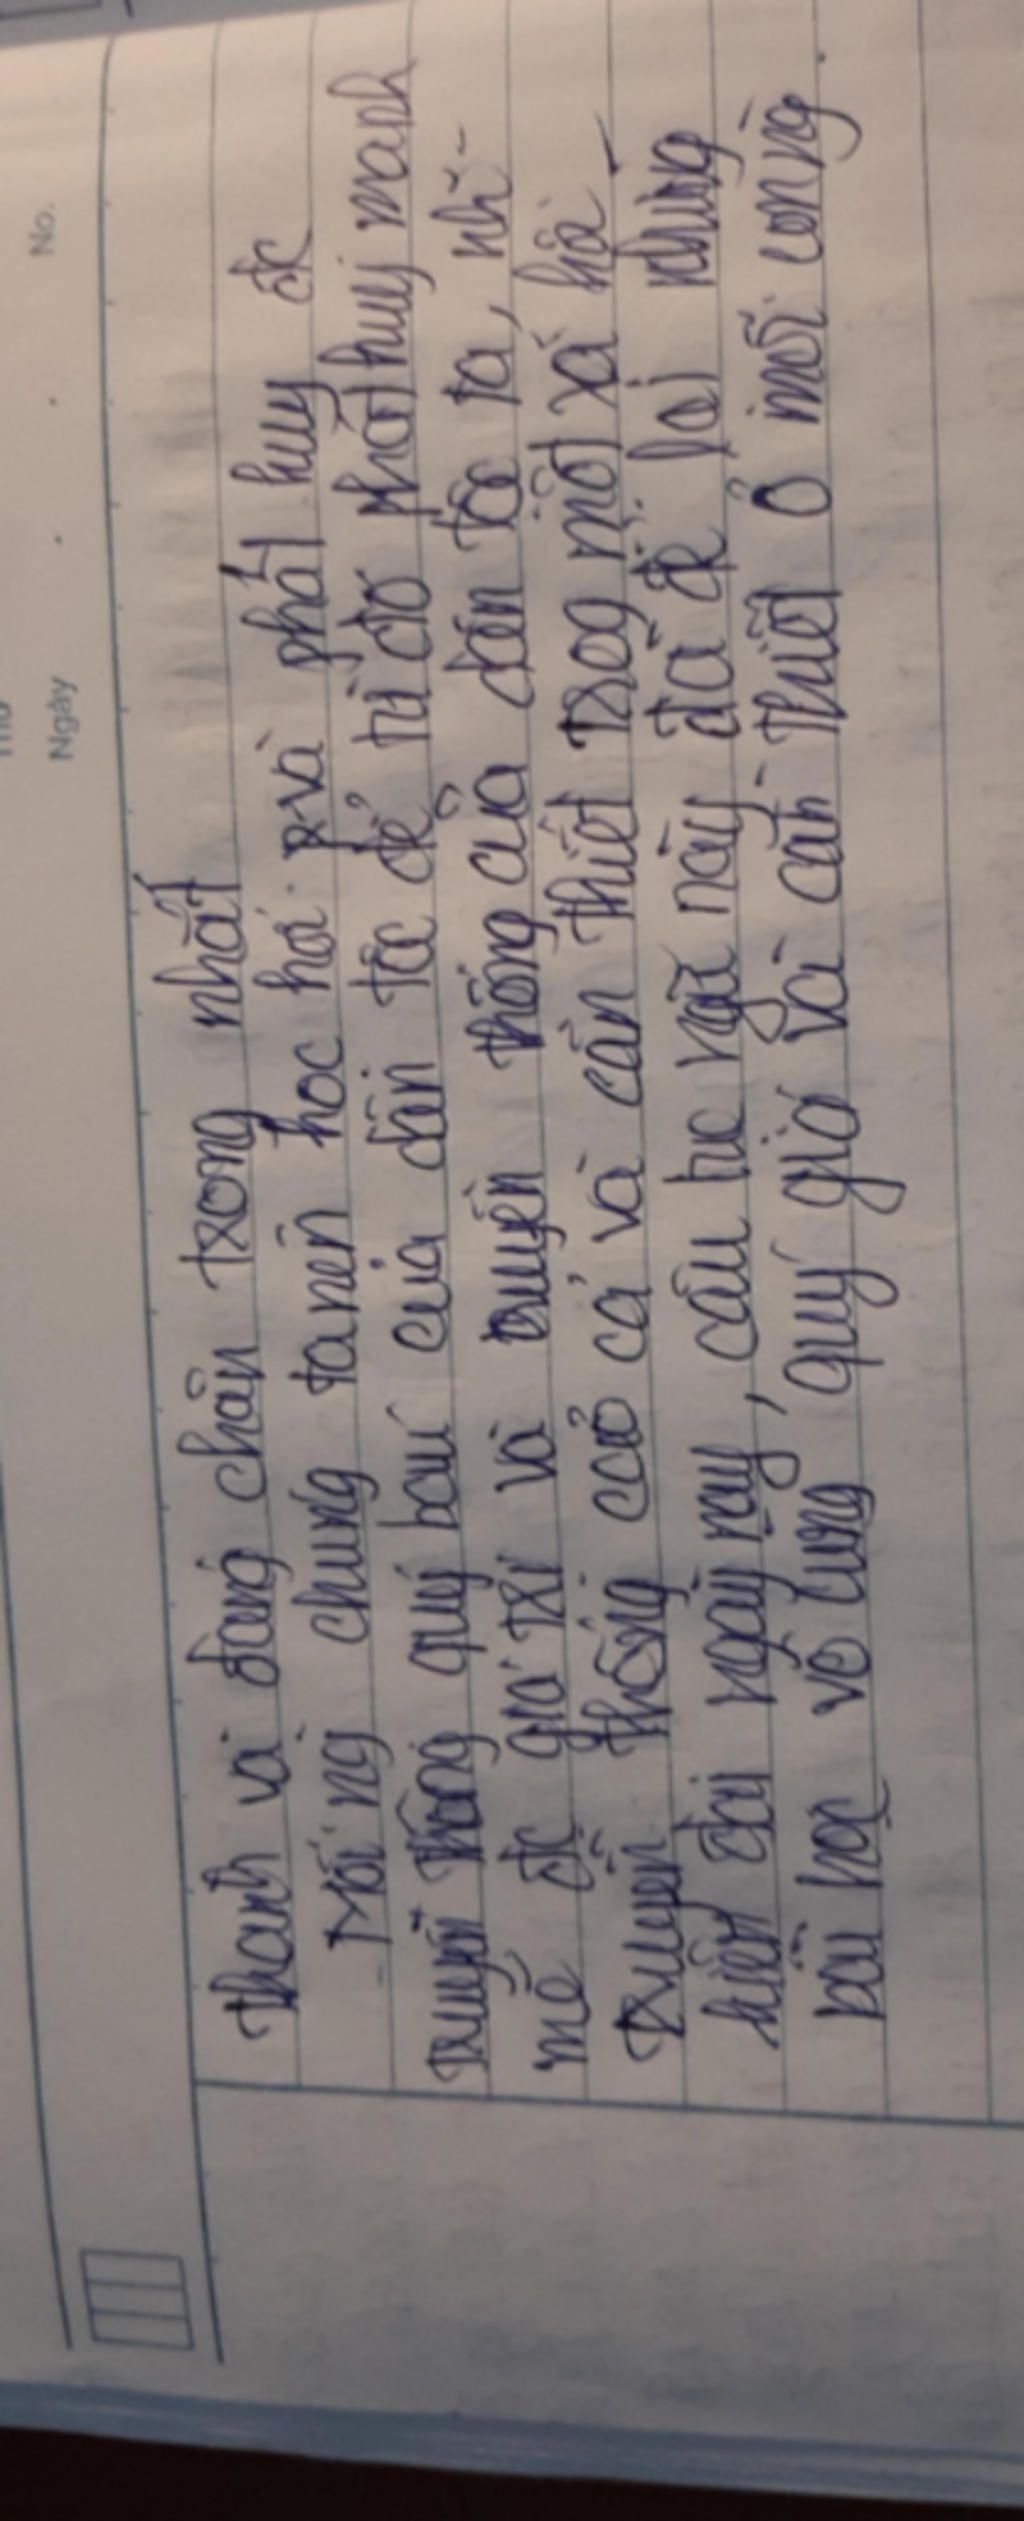 No.
Ngày
thanh và đáng chân trọng nhất
Mỗi ng chúng ta nên học hỏi và phát huy đc
truyền thống quý báu của dân tộc để từ đó phát huy mạnh
mẽ đc giá trị và truyền thống của dân tộc ta, nh~
truyền thống cao cả và cần thiết trog một xã hội
hiện đại ngày nay, câu tục ngữ này đã để lại những
bài học vô cùng quý giá và cần thiết ở mỗi con ng.